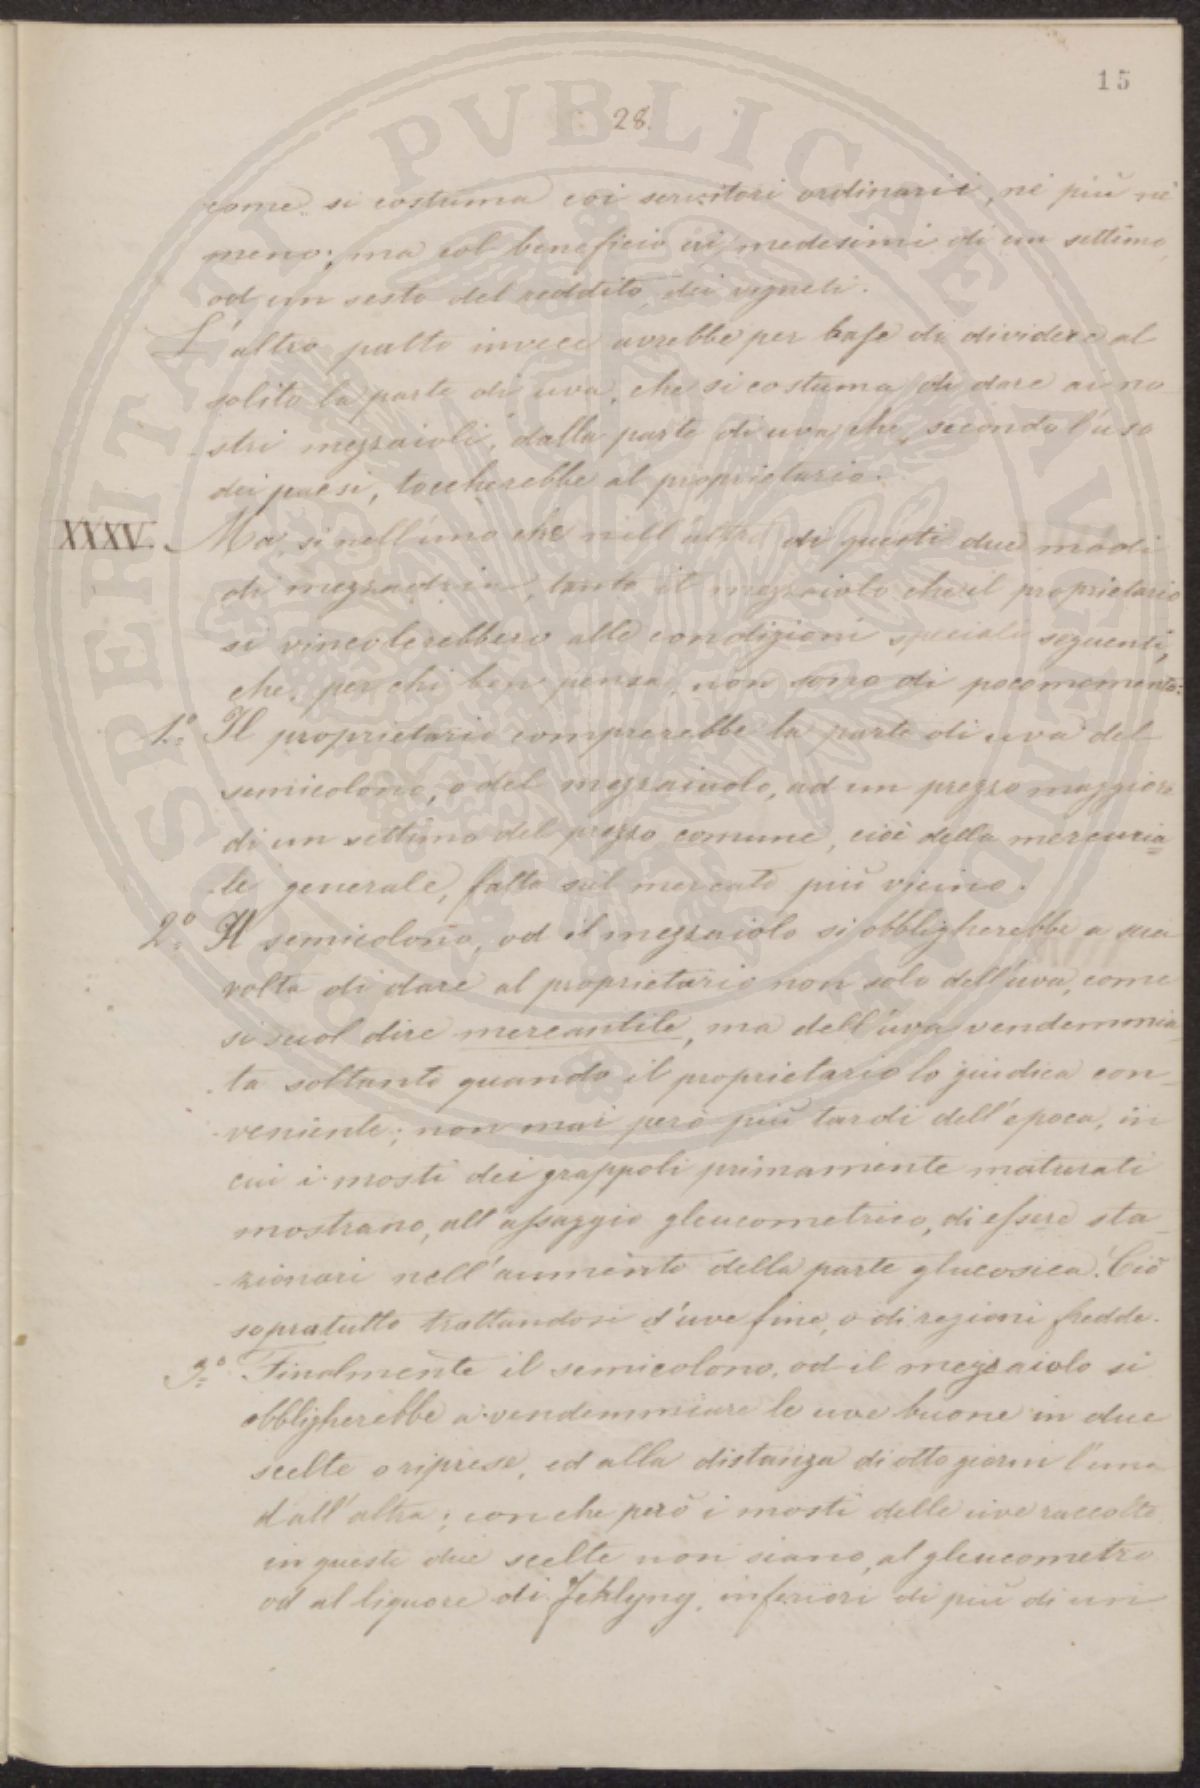 15
28.
come si costuma coi servitori ordinarii, nè più nè
meno; ma col beneficio ai medesimi di un settimo,
od un sesto del reddito dei vigneti.
L'altro patto invece avrebbe per base di dividere al
solito la parte di uva, che si costuma di dare ai no-
stri mezzaioli, dalla parte di uva che, secondo l'uso
dei paesi, toccherebbe al proprietario.
XXXV. Ma, sì nell'uno che nell'altro di questi due modi
di mezzadria, tanto il mezzaiolo che il proprietario
si vincolerebbero alle condizioni speciali seguenti,
che, per chi ben pensa, non sono di poco momento:
1.° Il proprietario comprerebbe la parte di uva del
semicolono, o del mezzaiuolo, ad un prezzo maggiore
di un settimo del prezzo comune, cioè della mercuria=
le generale, fatta sul mercato più vicino.
2.° Il semicolono, od il mezzaiolo si obbligherebbe a sua
volta di dare al proprietario non solo dell'uva, come
si suol dire mercantile, ma dell'uva vendemmia-
ta soltanto quando il proprietario lo giudica con-
veniente; non mai però più tardi dell'epoca, in
cui i mosti dei grappoli primamente maturati
mostrano, all'assaggio gleucometrico, di essere sta-
zionari nell'aumento della parte glucosica. Ciò
sopratutto trattandosi d'uve fine, o di regioni fredde.
3.° Finalmente il semicolono, od il mezzaiolo si
obbligherebbe a vendemmiare le uve buone in due
scelte o riprese, ed alla distanza di otto giorni l'una
dall'altra; con che però i mosti delle uve raccolte
in queste due scelte non siano, al gleucometro
od al liquore di Fehlyng, inferiori di più di un
PROSPERITATI PVBLICAE AVGENDAE